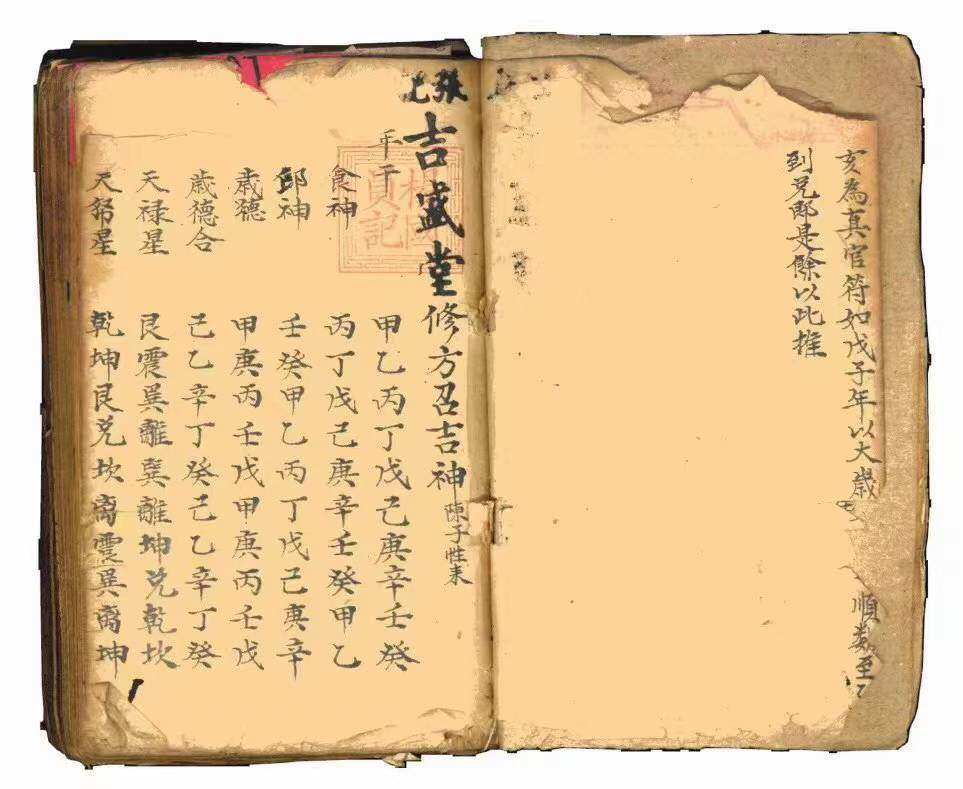 亥為真官符如戊子年以大歲 順数至
到兑郎是餘以此推
張 吉盛堂修方召吉神 陳子性
年干 甲乙丙丁戊己庚辛壬癸
食神 丙丁戊己庚辛壬癸甲乙
邱神 壬癸甲乙丙丁戊己庚辛
歲德 甲庚丙壬戊甲庚丙壬戊
歲德合 己乙辛丁癸己乙辛丁癸
天禄星 艮震巽離巽離坤兑乾坎
天帑星 乾坤艮兑坎离震巽离坤
員記